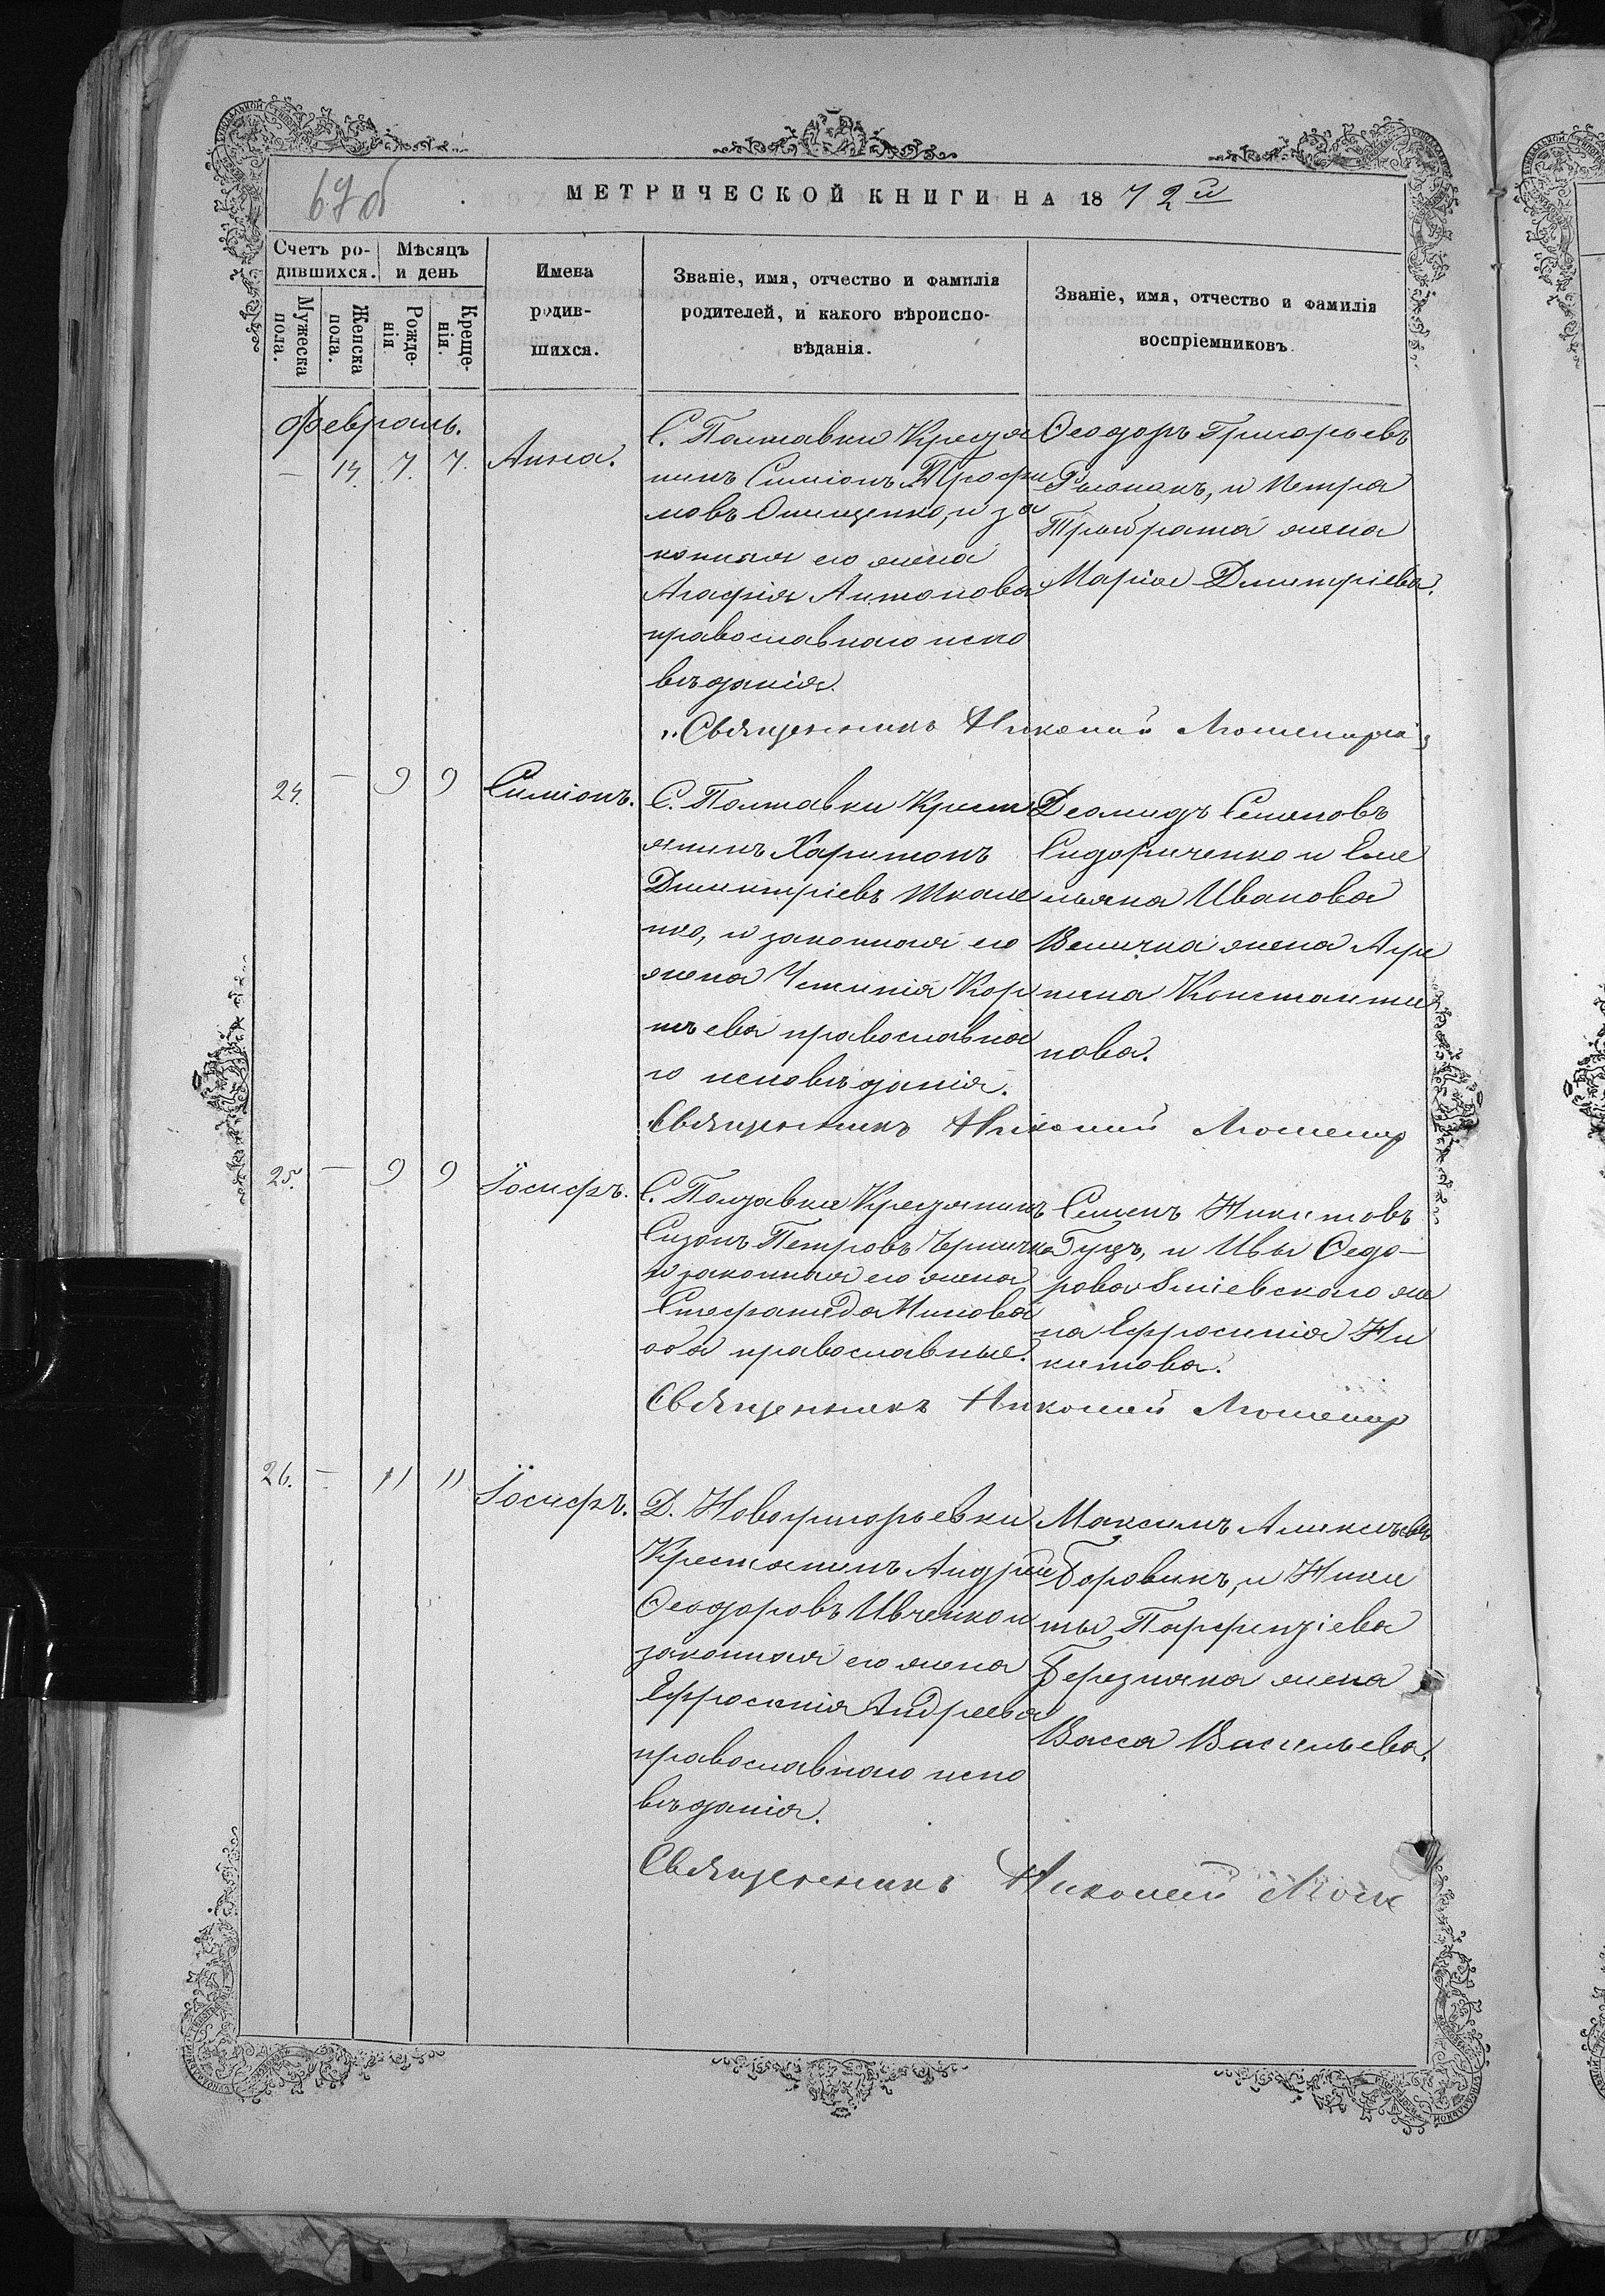 МЕТРИЧЕСКОЙ КНИГИ НА 1872й
Счетъ ро-
дившихся.
Мужеска
пола.
Женска
пола.
Мѣсяцъ
и день
Рожде-
нія
Креще-
нія.
Имена
родив-
шихся.
Званіе, имя, отчество и фамилія
родителей, и какого вѣроиспо-
вѣданія.
Званіе, имя, отчество и фамилія
воспріемниковъ.
Февраль.
— 14. 7. 7. Анна.
С. Полтавки Крестья
нинъ Симіонъ Трофи
мовъ Онищенко, и за
конная его жена
Агафія Антонова
православнаго испо
вѣданія.
Ѳеодоръ Григорьевъ
и Петра
жена
Марія Дмитріева.
Священникъ Николай
24. — 9 9 Симіонъ.
С. Полтавки Крест
янинъ Харитонъ
Дмитріевъ Шкале
нко, и законная его
жена Устинія Кор
нѣева православна
го исповѣданія.
Деомидъ Семеновъ
Сидориченко и Еме
льяна Иванова
Величка жена Ири
нина Константи
нова.
Священникъ Николай
25. — 9 9 Іосифъ.
С. Полтавки Крестянинъ
Сизонъ Петровъ
и законная его жена
Стефанида
оба православные.
Семенъ Никитовъ
Гузъ, и Ивы Ѳедо-
рова жe
на Ефросинія Ни
китова.
Священникъ Николай
26. — 11 11 Іосифъ.
Д. Новогригорьевки
Крестянинъ Андрей
Ѳеодоровъ Ивченко и
законная его жена
Ефросинія Андреева
православнаго испо
вѣданія.
Максимъ Алексѣевъ
Боровикъ, и Ники
ты Парфентіева
Березняка жена
Васса Васильева.
Священникъ Николай